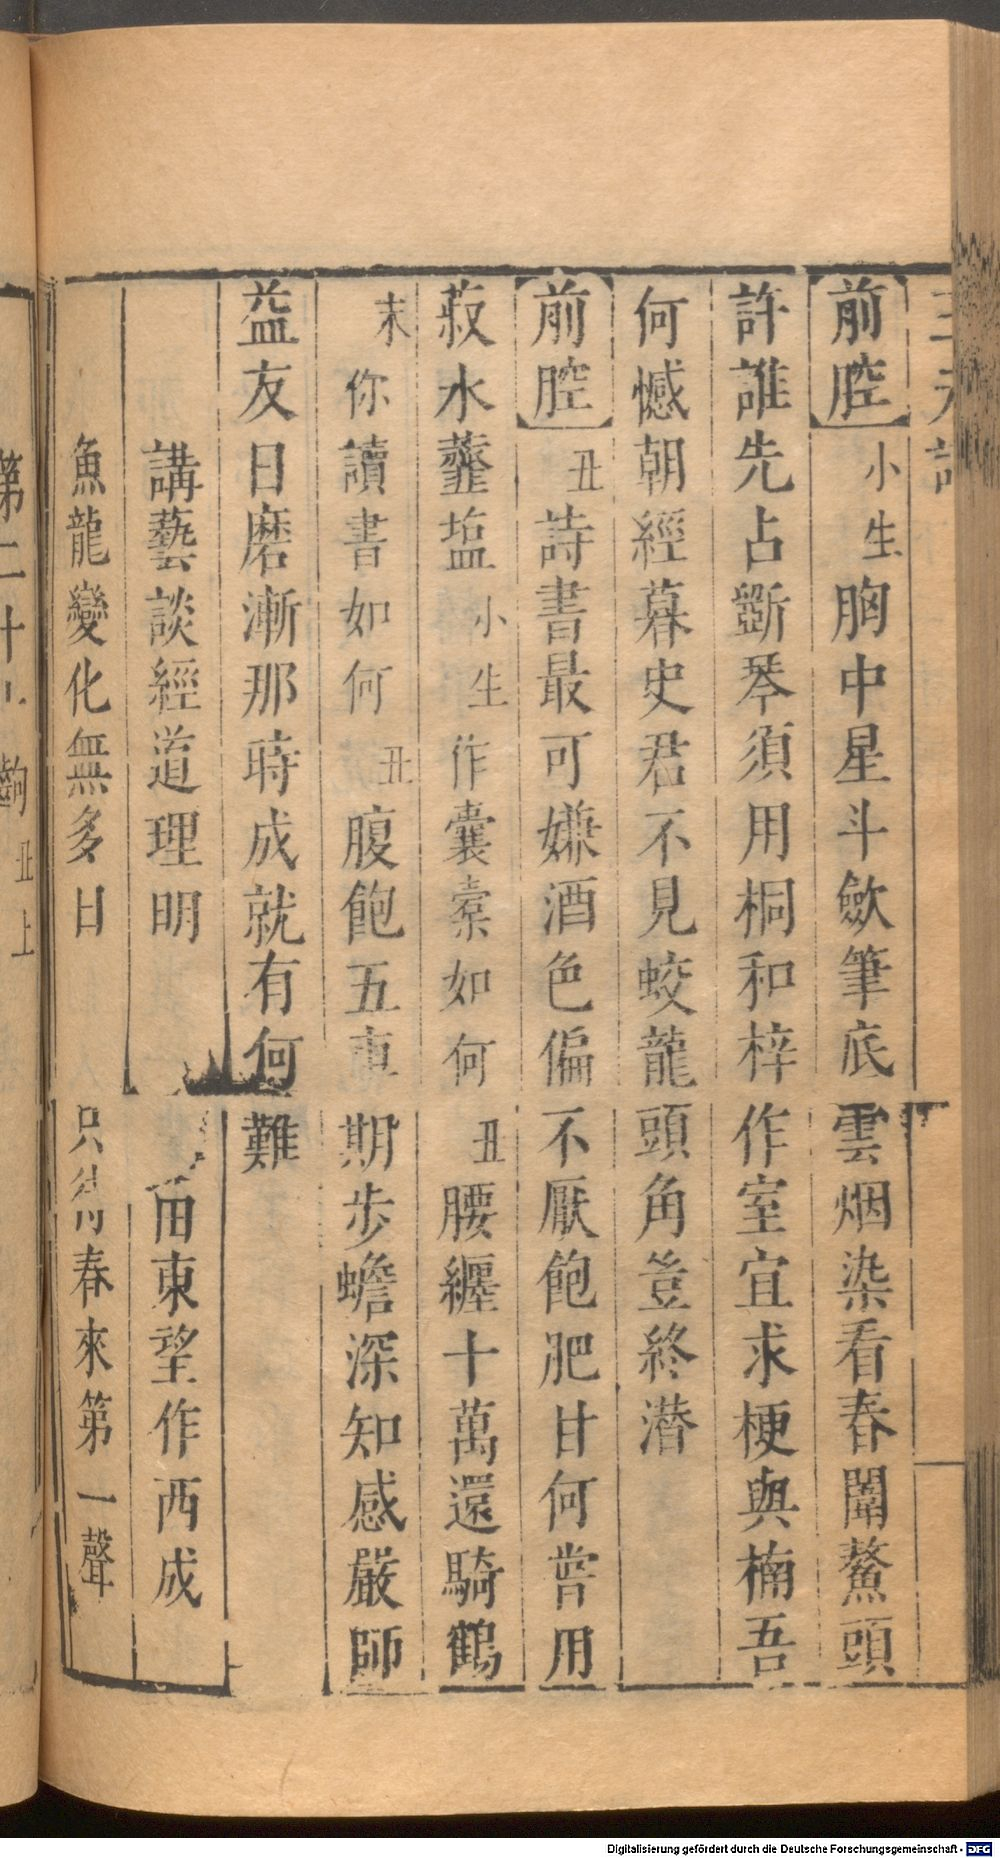 前腔小生胸中星斗歛筆底雲烟染看春闈鰲頭
許誰先占斵琴須用桐和梓作室宜求梗與楠吾
何憾朝經暮史君不見蛟龍頭角豈終潛
前腔丑詩書最可嫌酒色偏不厭飽肥甘何嘗用
菽水虀塩小生作囊橐如何丑腰纏十萬還騎鶴
末你讀書如何丑腹飽五車期步蟾深知感嚴師
益友日磨漸那時成就有何難
講藝談經道理明 東望作西成
魚龍變化無多日只待春來第一聲
第二十齣丑上
Digitalisierung gefördert durch die Deutsche Forschungsgemeinschaft - DFG